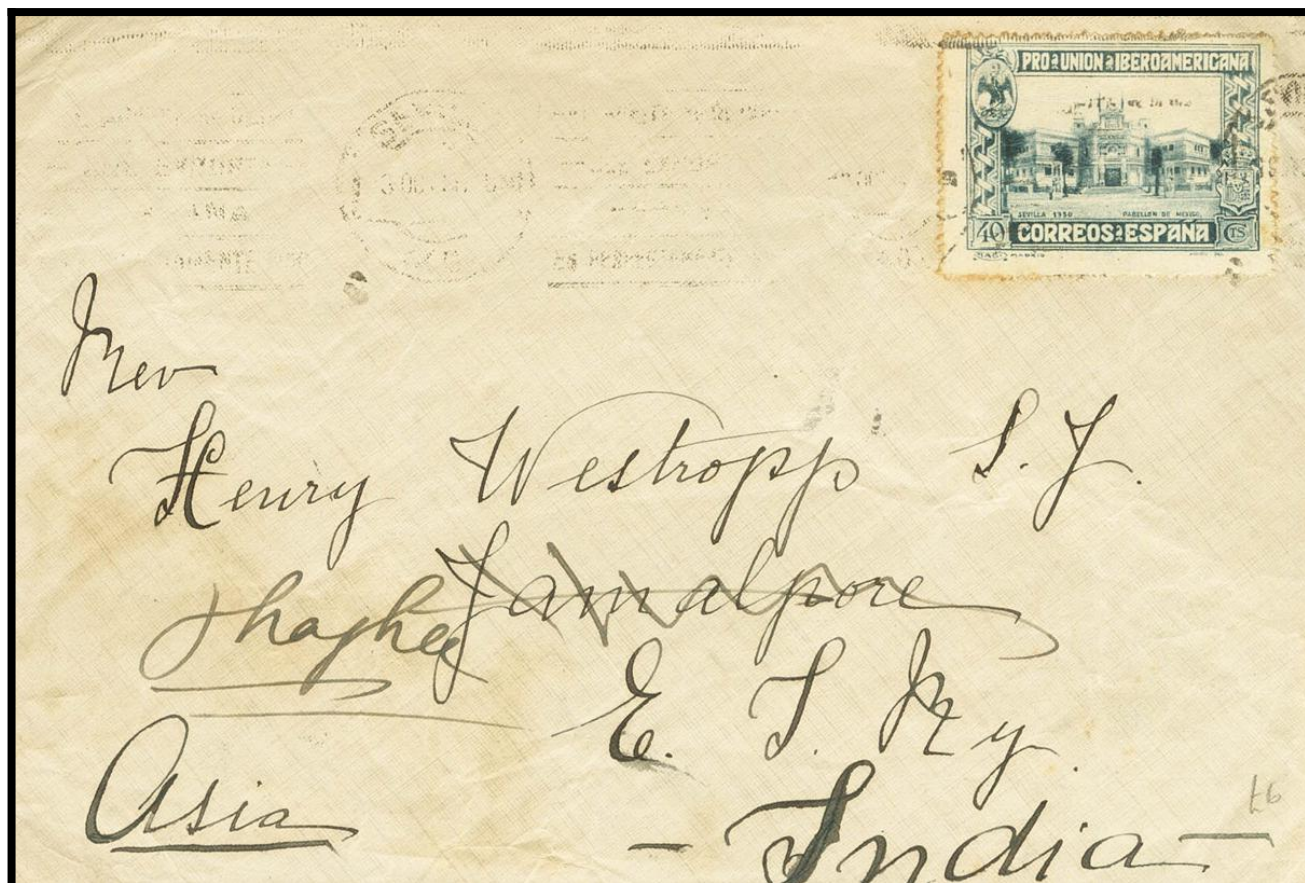 PRO UNION IBEROAMERICANA
SEVILLA 1930 PABELLON DE MEXICO
40 CORREOS ESPAÑA CTS
Rev
Henry Westropp S. J.
Jamalpore
E. I. Ry.
Asia
- India -